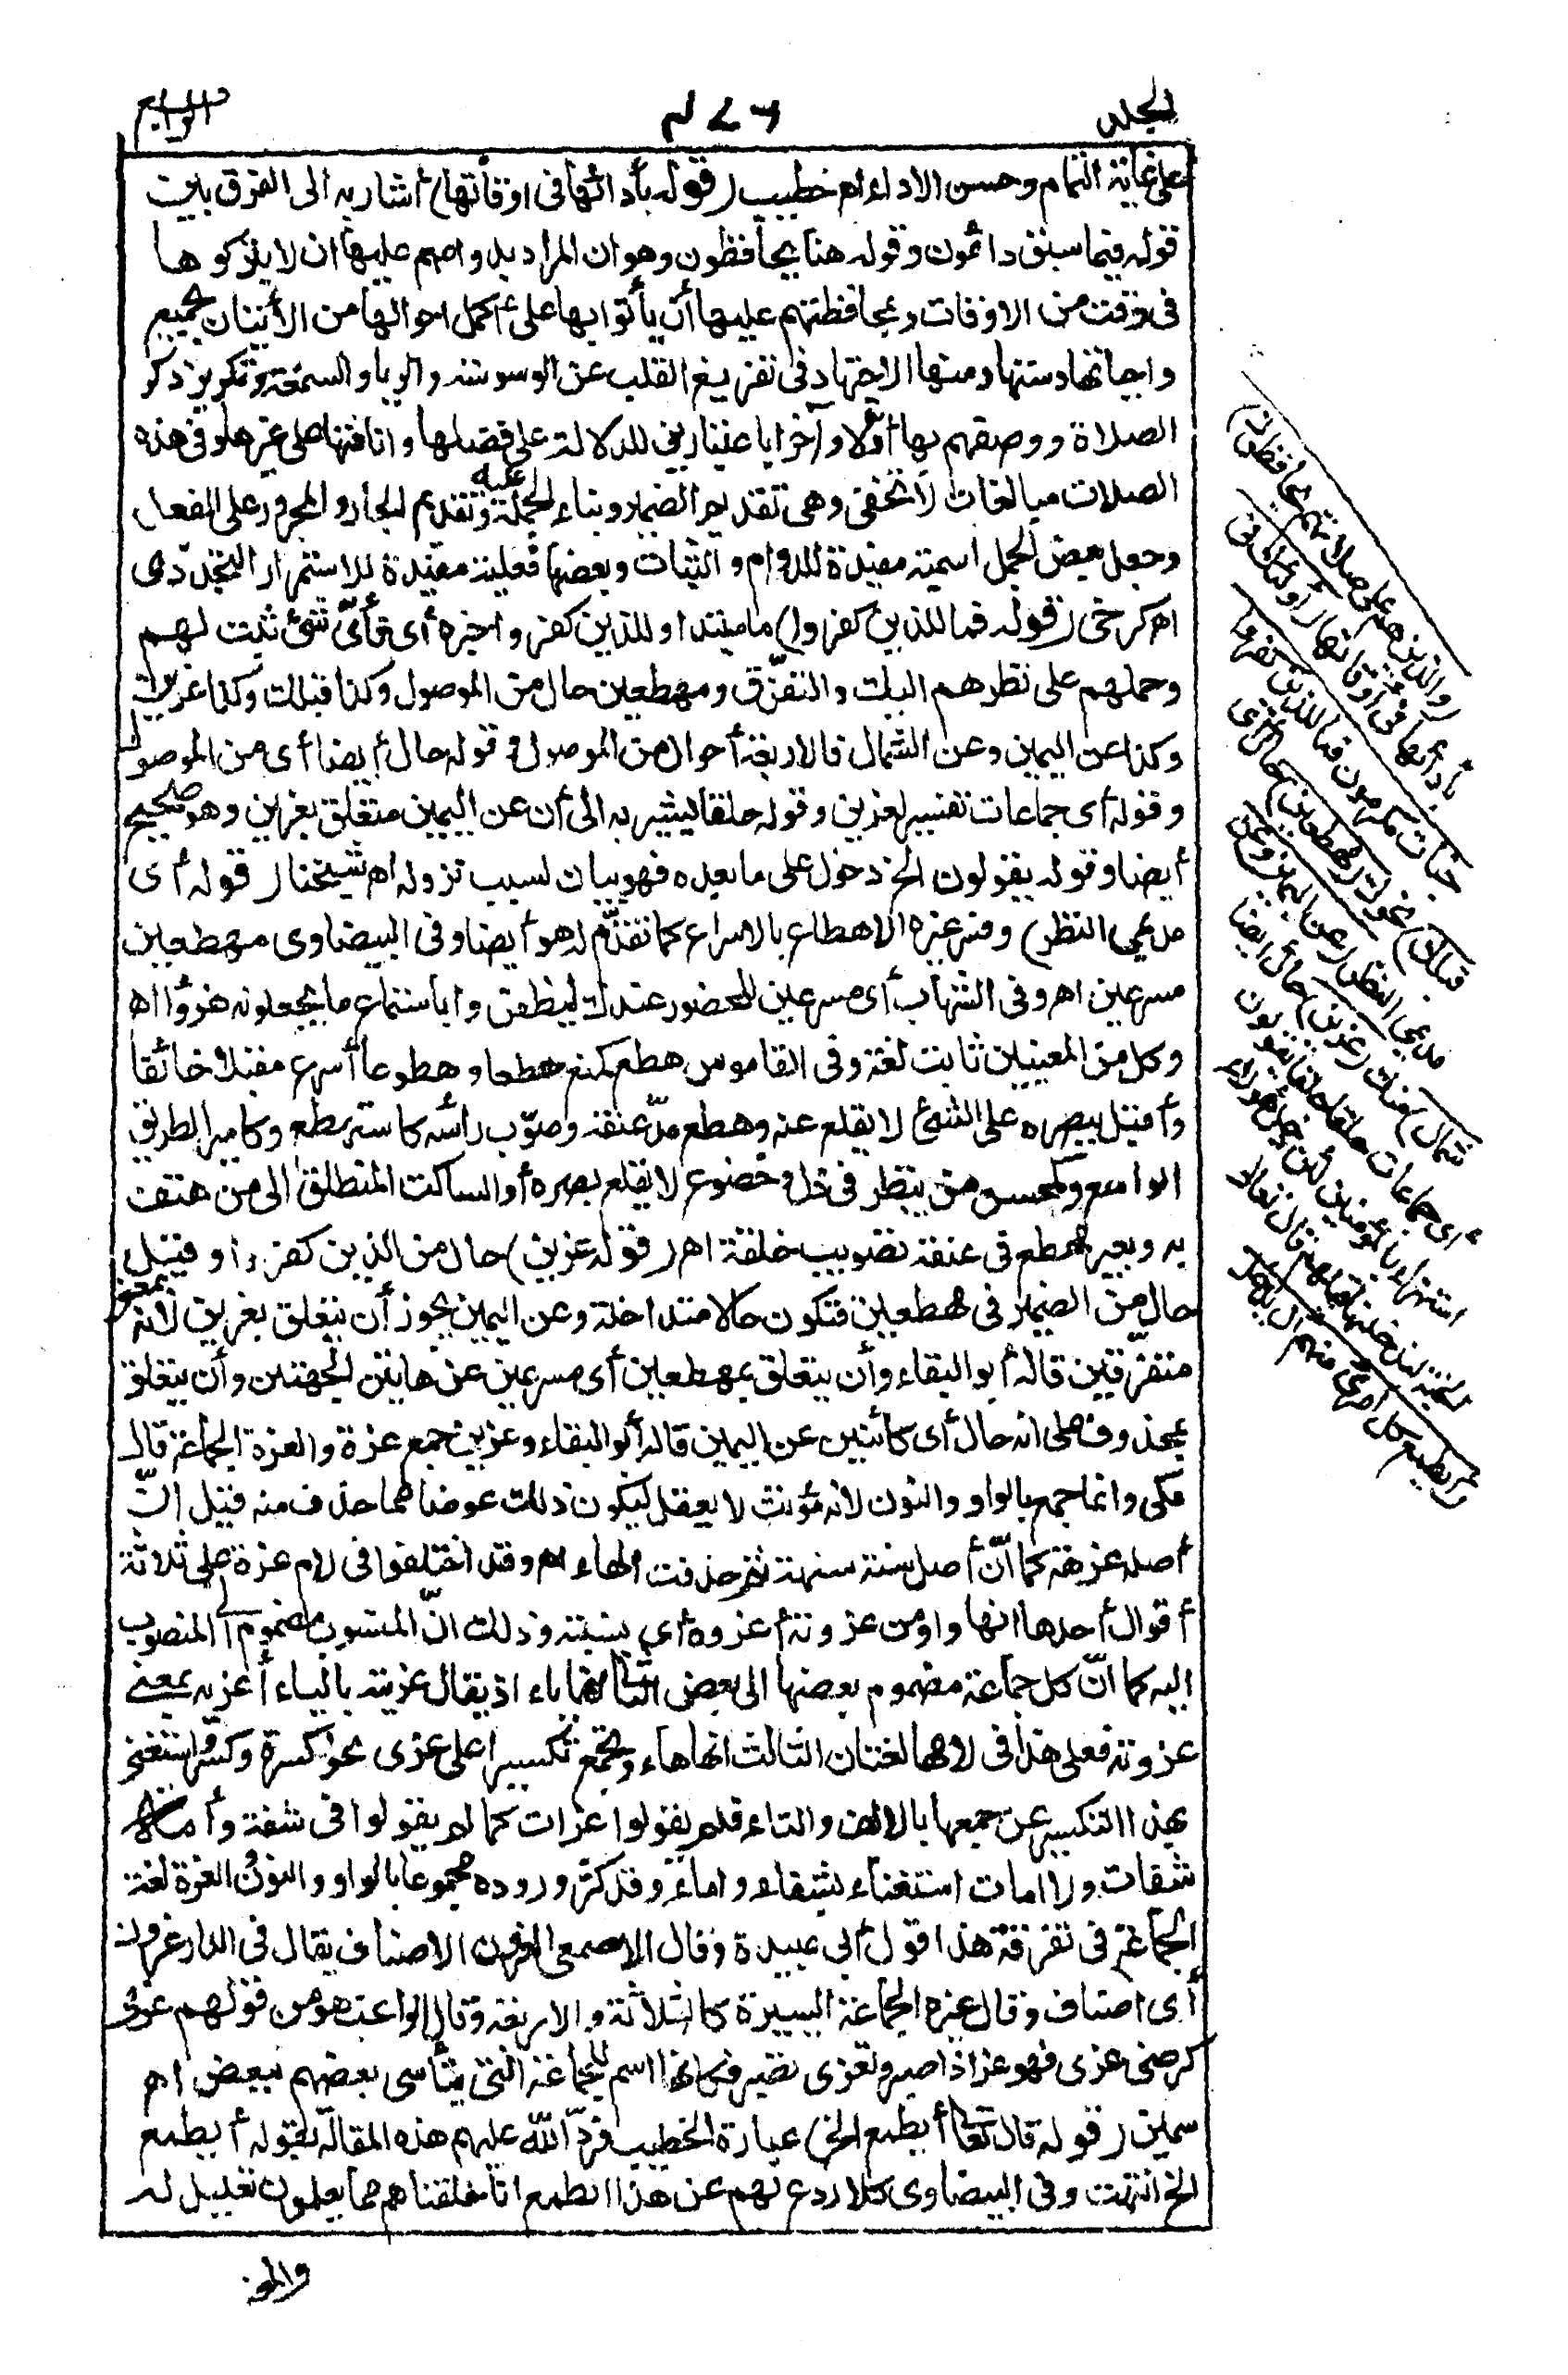 المجلد
٤٧٦
الرابع
على غاية التمام وحسن الاداء اه خطيب (قوله بأدائها فى اوقاتها) أشار به الى الفرق بين
قوله فيما سبق دائمون وقوله هنا يحافظون وهو ان المراد بدوامهم عليها ان لا يتركوها
فى وقت من الاوقات وبمحافظتهم عليها أن يأتوا بها على أكمل احوالها من الأتيان بجميع
واجباتها وسننها ومنها الاجتهاد فى تفريغ القلب عن الوسوسة والرياء والسمعة وتكرير ذكر
الصلاة ووصفهم بها أوّلا وآخرا باعتبارين للدلالة على فضلها وانافتها على غيرها وفى هذه
الصلات مبالغات لا تخفى وهى تقديم الضمير وبناء الجملة عليه وتقديم الجار والمجرور على الفعل
وجعل بعض الجمل اسمية مفيدة للدوام والثبات وبعضها فعلية مفيدة للاستمرار التجدّدى
اه كرخى (قوله فما للذين كفروا) ما مبتدا وللذين كفروا خبره أى فأىّ شئ ثبت لهم
وحملهم على نظرهم اليك والتفرّق ومهطعين حال من الموصول وكذا قبلك وكذا عزين
وكذا عن اليمين وعن الشمال فالاربعة أحوال من الموصول وقوله حال أيضا أى من الموصول
وقوله أى جماعات تفسير لعزين وقوله حلقا يشير به الى أن عن اليمين متعلق بعزين وهو صحيح
أيضا وقوله يقولون الخ دخول على ما بعده فهو بيان لسبب نزوله اه شيخنا (قوله أى
مديمى النظر) وفسر غيره الاهطاع بالاسراع كما تقدّم له هو أيضا وفى البيضاوى مهطعين
مسرعين اه وفى الشهاب أى مسرعين للحضور عندك ليظفروا باستماع ما يجعلونه هزؤا اه
وكل من المعنيين ثابت لغة وفى القاموس هطع كمنع هطعا وهطوعا أسرع مقبلا خائفا
وأقبل ببصره على الشئ لا يقلع عنه وهطع مدّ عنقه وصوّب رأسه كاستهطع وكامير الطريق
الواسع وكمحسن من ينظر فى ذل وخضوع لا يقلع بصره أو الساكت المنطلق الى من هتف
به وبعير مهطع فى عنقه تصويب خلقة اه (قوله عزين) حال من الذين كفروا وقيل
حال من الضمير فى مهطعين فتكون حالا متداخلة وعن اليمين يجوز أن يتعلق بعزين لأنه بمعنى
متفرّقين قاله أبو البقاء وأن يتعلق بمهطعين أى مسرعين عن هاتين الجهتين وأن يتعلق
بمحذوف على انه حال أى كائنين عن اليمين قاله أبو البقاء وعزين جمع عزة والعزة الجماعة قال
مكى وانما جمع بالواو والنون لانه مؤنث لا يعقل ليكون ذلك عوضا مما حذف منه قيل انّ
أصله عزهة كما انّ أصل سنة سنهة ثم حذفت الهاء اه وقد اختلفوا فى لام عزة على ثلاثة
أقوال أحدها انها واو من عزوته أعزوه أى نسبته وذلك انّ المنسوب مضموم الى المنسوب
اليه كما انّ كل جماعة مضموم بعضها الى بعض الثانى انها ياء اذ يقال عزيته بالياء أعزيه بمعنى
عزوته فعلى هذا فى لامها لغتان الثالث انها هاء وتجمع تكسيرا على عزى نحو كسرة وكسر واستغنى
بهذا التكسير عن جمعها بالالف والتاء فلم يقولوا عزات كما لم يقولوا فى شفة وأمة
شفات ولا امات استغناء بشفاه واماء وقد كثر وروده مجموعا بالواو والنون والعزة لغة
الجماعة فى تفرقة هذا قول أبى عبيدة وقال الاصمعى العزون الاصناف يقال فى الدار عزون
أى اصناف وقال غيره الجماعة اليسيرة كالثلاثة والاربعة وقال الراغب هو من قولهم عزى
كرضى عزى فهو عز اذا صبر وتعزى تصبر فكأنها اسم للجماعة التى يتأسى بعضهم ببعض اه
سمين (قوله قال تعالى أيطمع الخ) عبارة الخطيب فردّ الله عليهم هذه المقالة بقوله أيطمع
الخ انتهت وفى البيضاوى كلا ردع لهم عن هذا الطمع انا خلقناهم مما يعلمون تعليل له
والمعنى
(والذين هم على صلاتهم يحافظون)
بأدائها فى أوقاتها (أولئك فى
جنات مكرمون فما للذين كفروا
قبلك) نحوك (مهطعين) حال أى
مديمى النظر (عن اليمين وعن
الشمال) منك (عزين) حال أيضا
أى جماعات حلقا حلقا يقولون
استهزاء بالمؤمنين لئن دخل هؤلاء
الجنة لندخلنها قبلهم قال تعالى
(أيطمع كل امرئ منهم أن يدخل